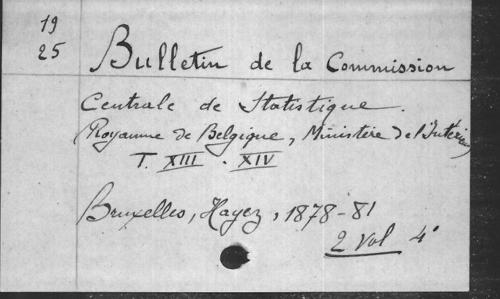 19
25
Bulletin de la Commission
Centrale de Statistique.
(Royaume de Belgique, Ministère de l'Intérieur
T. XIII. XIV
Bruxelles, Hayez, 1878-81
2 vol 4°